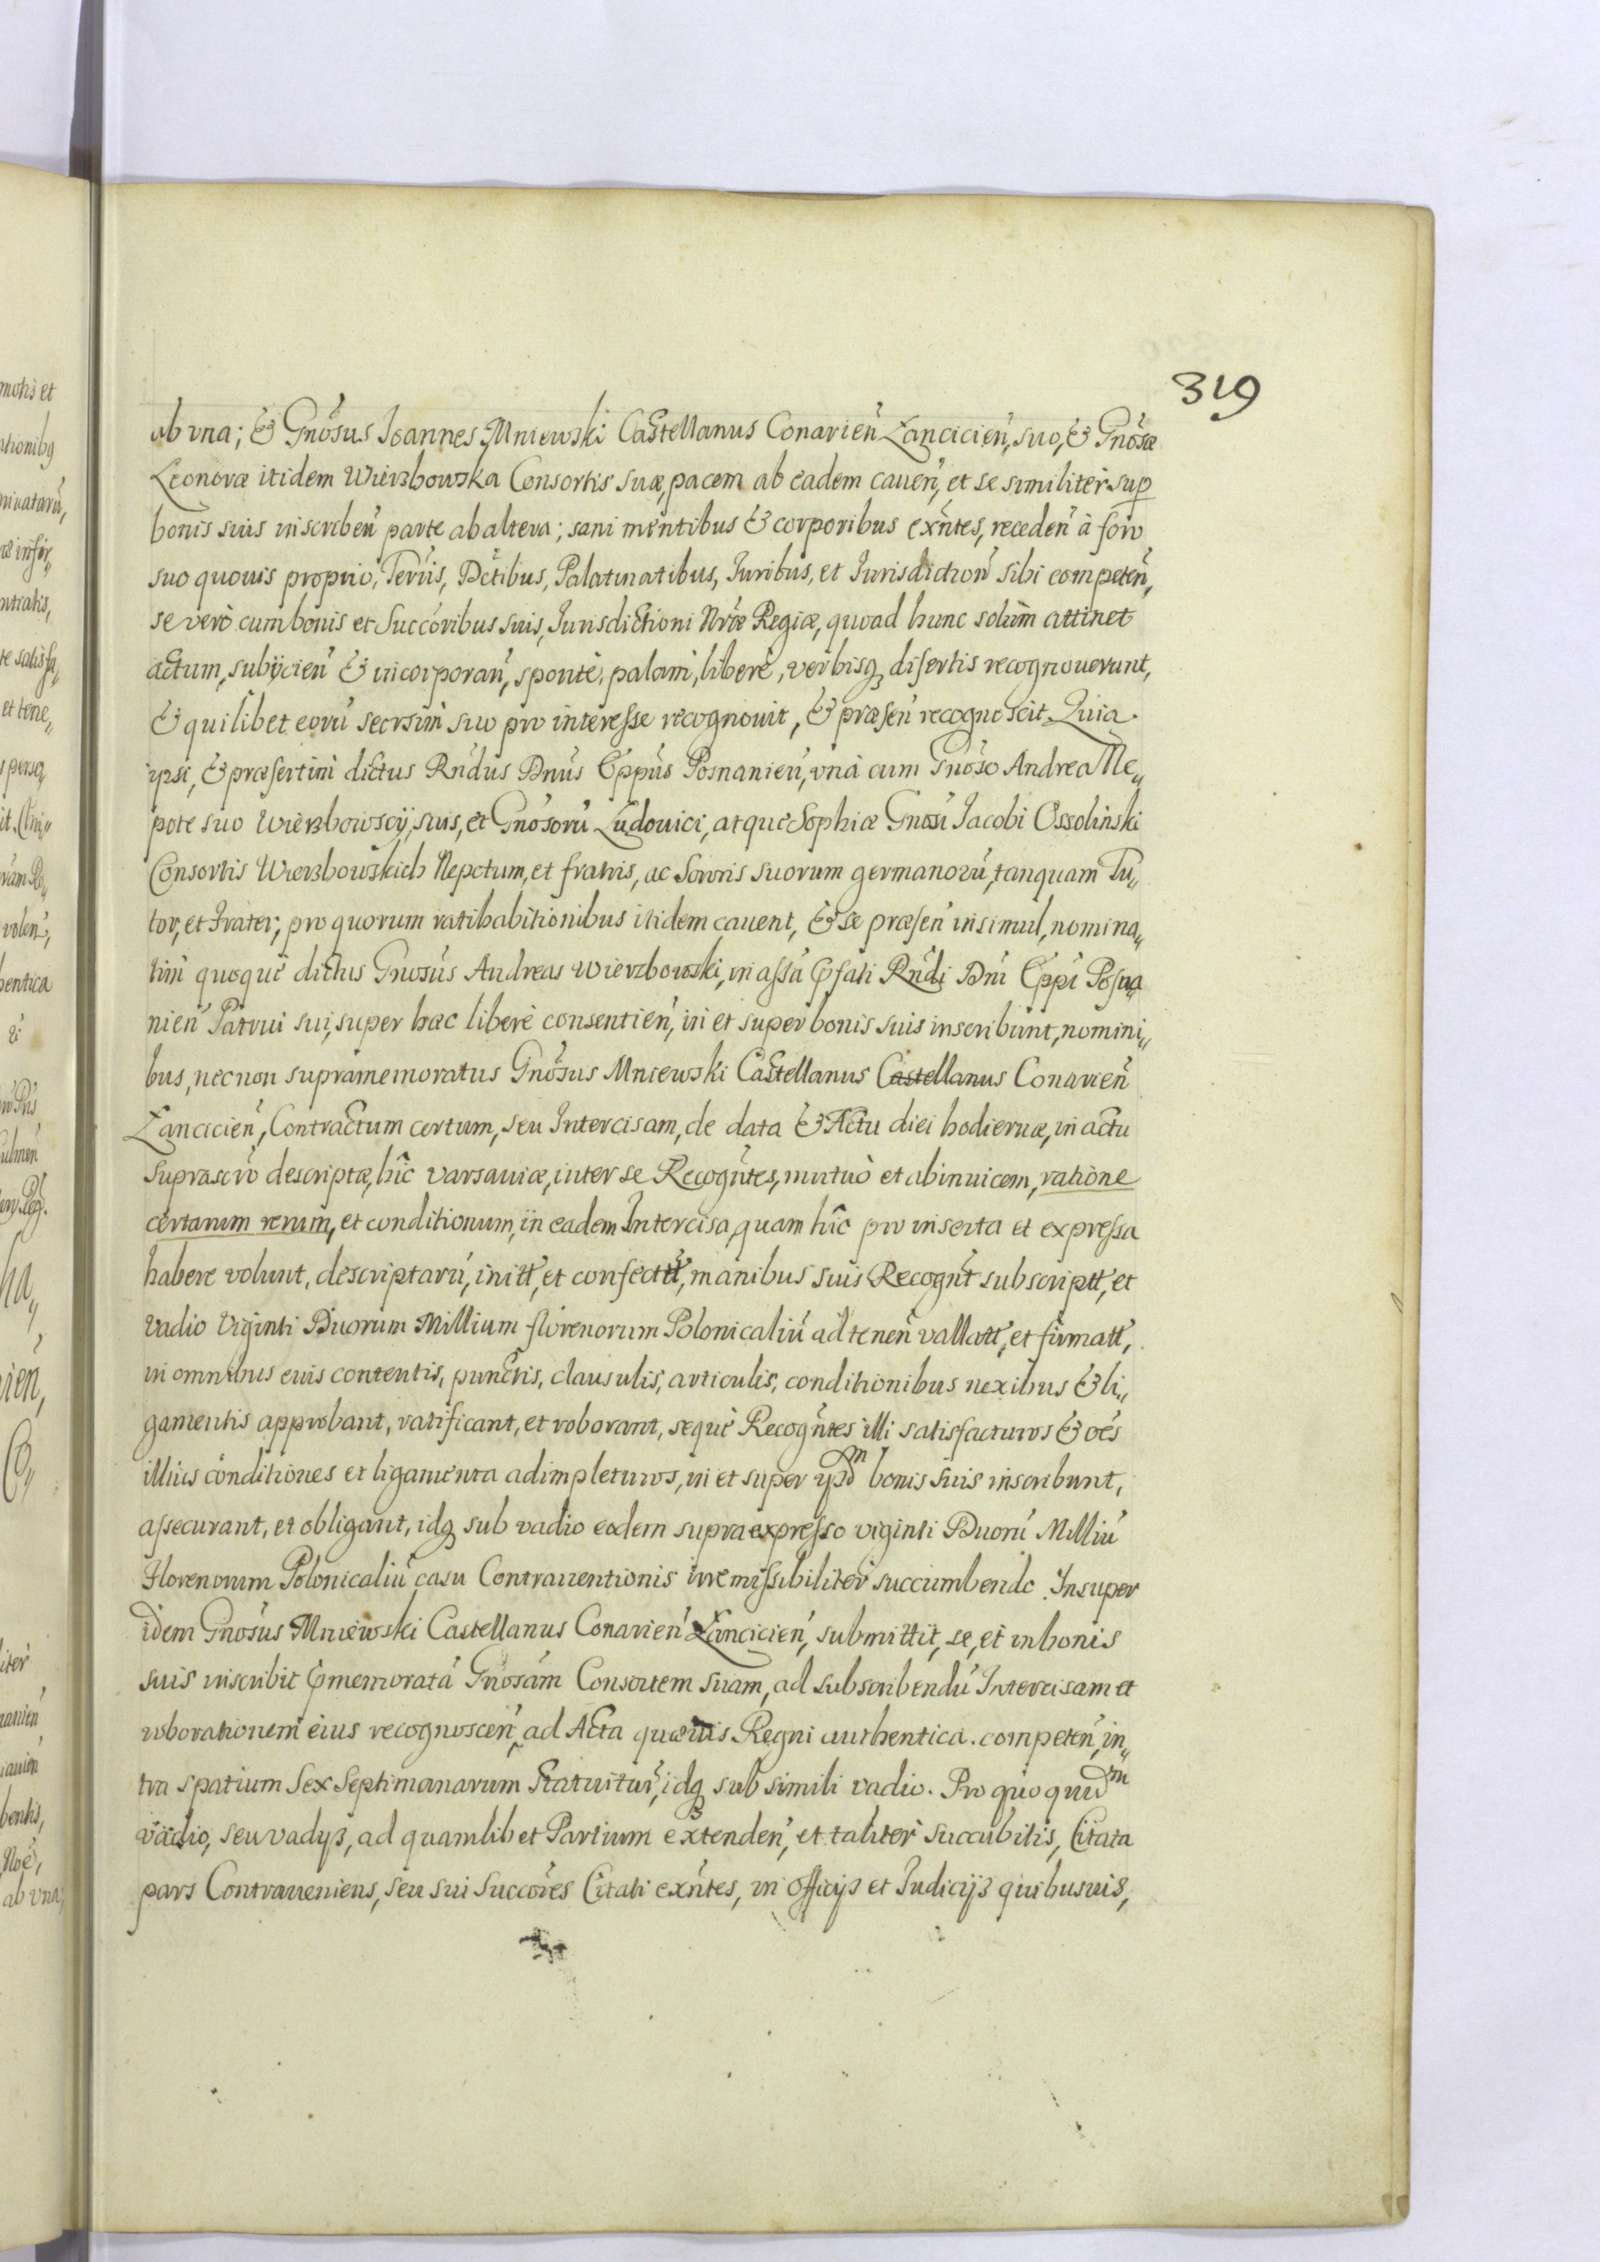 319
ab vna; & Gnösus Joannes Mniewski Castellanus Conarień Lancicień, suo, & Gnösæ
Leonoræ itidem Wierzbowska Consortis suæ, pacem ab eadem caueń, et se similitèr sup
bonis suis inscribeń parte ab altera; sani mentibus & corporibus exñtes, recedeń à foro
suo quouis proprio, Terris, Dctibus, Palatinatibus, Iuribus, et Iurisdictioñ sibi competeń,
se verò cum bonis et Succoribus suis, Iurisdictioni Nræ Regiæ, quoad hunc solùm attinet
actum, subijcień & incorporań, spontè, palam, liberè, verbisq disertis recognouerunt,
& quilibet eorũ seorsim suo pro interesse recognouit, & præseń recognoscit. Quia
ipsi, & præsertim dictus Rndus Dnus Eppus Posnanień, vnà cum Gnoso Andrea Ne„
pote suo Wierzbowscÿ, suis, et Gnosorũ Ludouici, atquè Sophiæ Gnosi Jacobi Ossolinski
Consortis Wierzbowskich Nepotum, et fratris, ac Sororis suorum germanorũ, tanquam Tu„
tor, et Frater; pro quorum ratihabitionibus itidem cauent, & se præseń insimul, nomina„
tim quoquè dictus Gnosus Andreas Wierzbowski, in assa Pfati Rndi Dni Eppi Posna
nień Patrui sui, super hæc liberè consentień, in et super bonis suis inscribunt, nomini„
bus, necnon supramemoratus Gnosus Mniewski Castellanus Castellanus Conarień
Lancicień, Contractum certum, seu Intercisam, de data & Actu diei hodiernæ, in actu
suprascro descriptæ, hîc Varsauiæ, inter se Recogñtes, mutuò et abinuicem, ratione
certarum rerum, et conditionum, in eadem Intercisa, quam hîc pro inserta et expressa
habere volunt, descriptarũ, initt, et confectt, manibus suis Recogñt subscriptt, et
vadio Viginti Duorum Millium florenorum Polonicaliũ ad teneń vallatt, et firmatt,
in omnibus eius contentis, punctis, clausulis, articulis, conditionibus nexibus & li„
gamentis approbant, ratificant, et roborant, sequè Recogñtes illi satisfacturos & oes
illius conditiones et ligamenta adimpleturos, in et super ijsdm bonis suis inscribunt,
assecurant, et obligant, idq sub vadio eodem supraexpresso viginti Duorũ Milliũ
Florenorum Polonicaliũ casu Contrauentionis irremissibilitèr succumbendo. Insuper
idem Gnosus Mniewski Castellanus Conarień Lancicień, submittit, se, et in bonis
suis inscribit Pmemoratã Gnosam Consortem suam, ad subscribendũ Intercisam et
roborationem eius recognosceń, ad Acta quæuis Regni authentica competeń, in„
tra spatium Sex Septimanarum Statuitur, idq sub simili vadio. Pro quo quidm
vadio, seu vadÿs, ad quamlibet Partium extendeń, et talitèr succubitis, Citata
pars Contraueniens, seu sui Succores Citati exñtes, in Officÿs et Iudicÿs quibusuis,